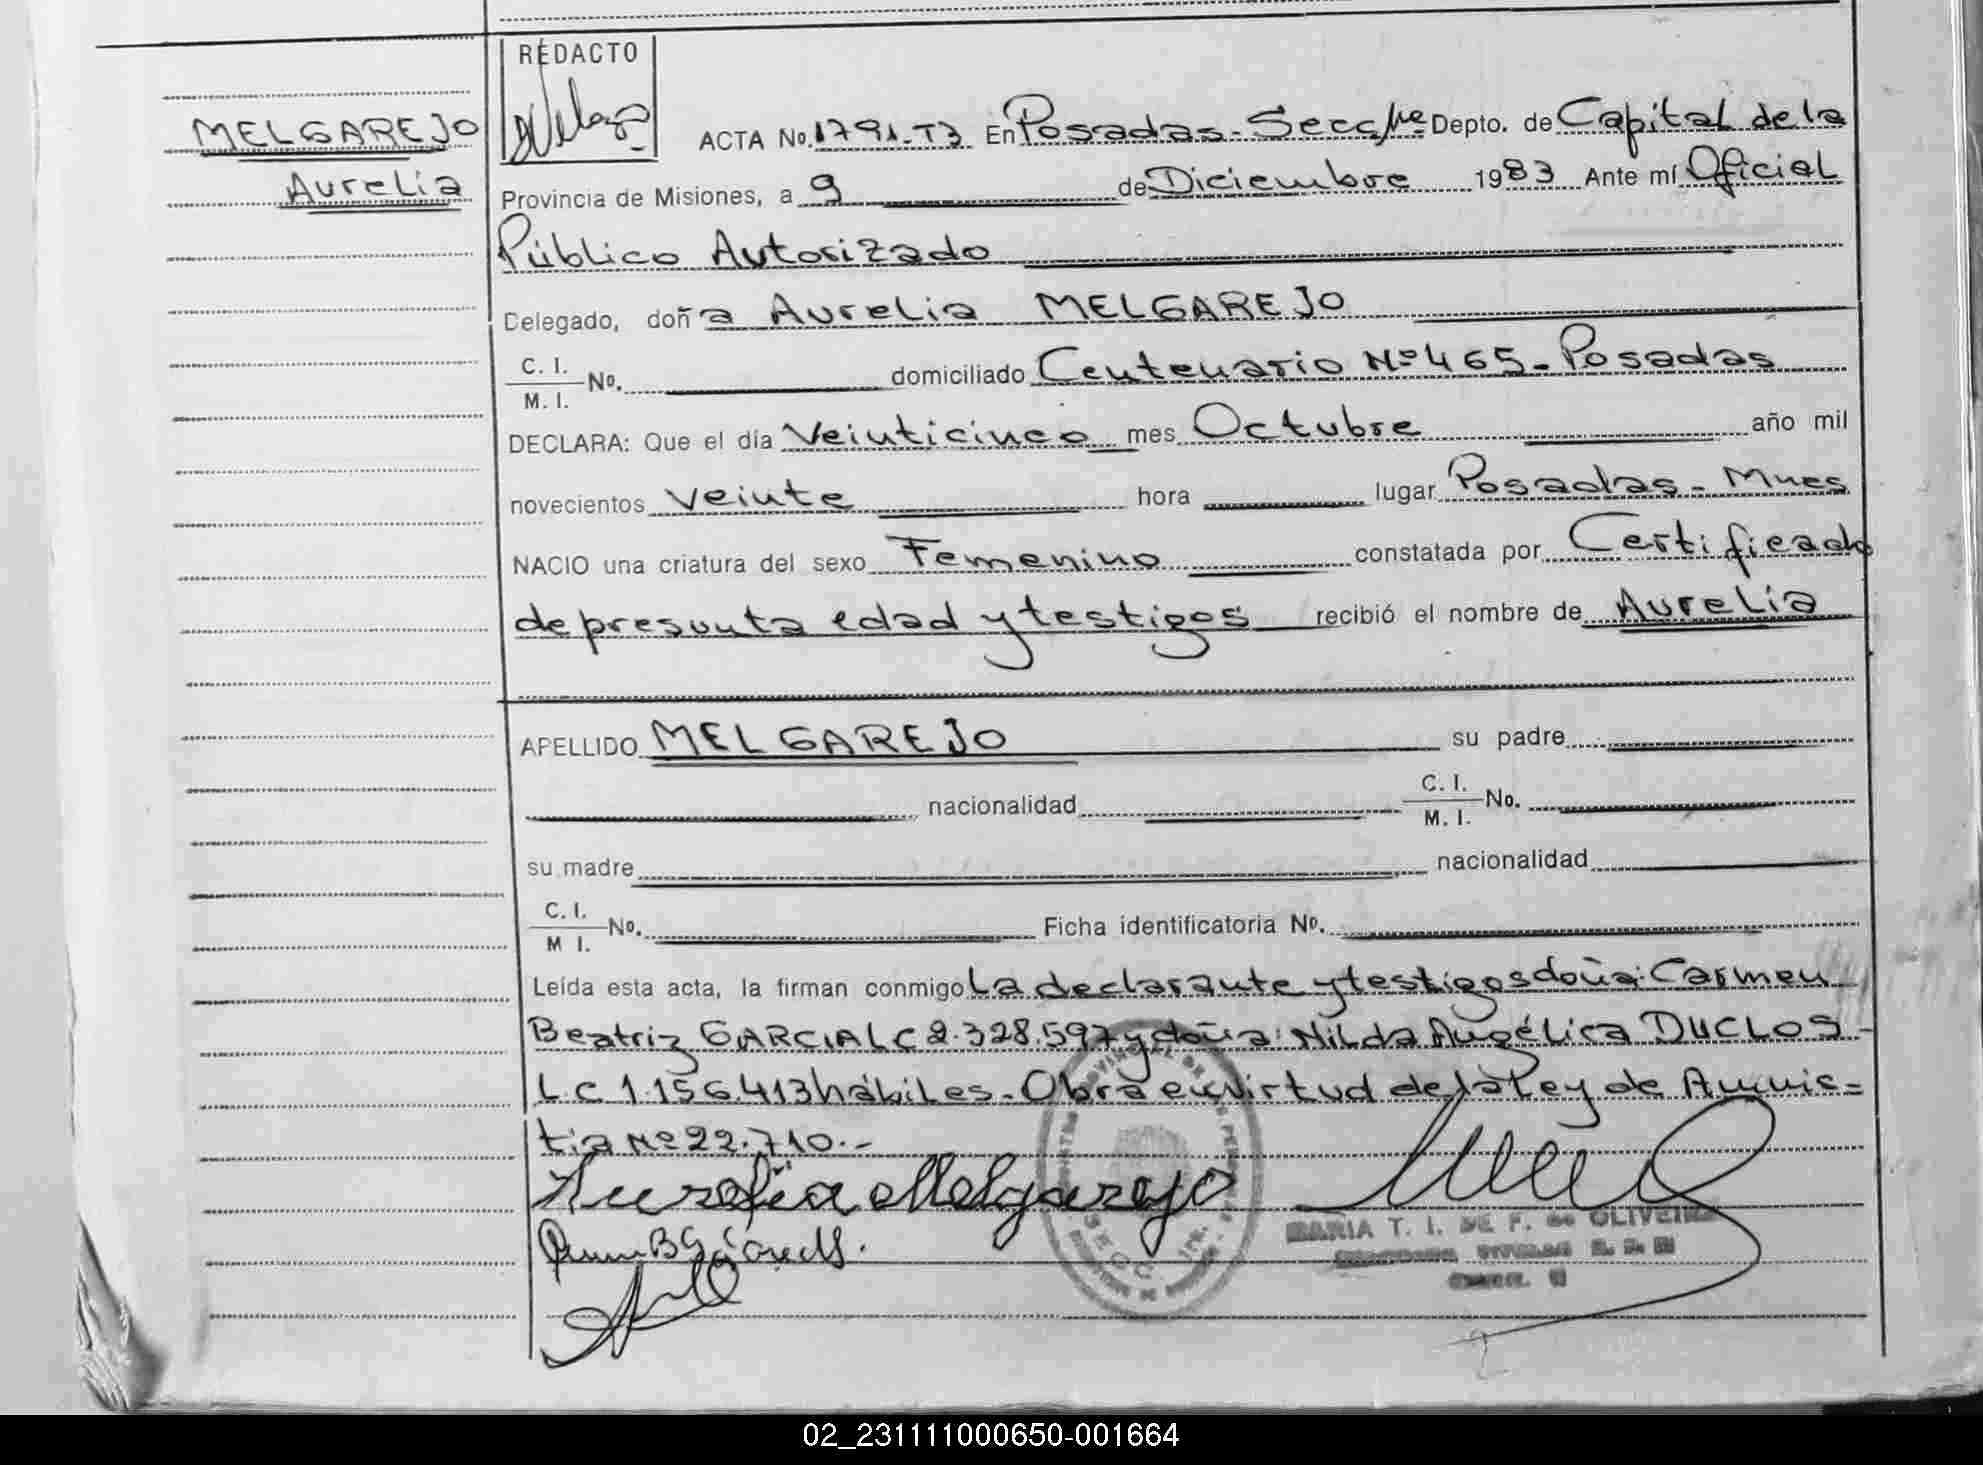 MELGAREJO
Aurelia
REDACTO
ACTA No. 1791-T3 En Posadas-Secc 1ra Depto. de Capital de la
Provincia de Misiones, a 9 de Diciembre 1983 Ante mí Oficial
Público Autorizado
Delegado, doña Aurelia MELGAREJO
C. I.
M. I. No. domiciliado Centenario Nº 465-Posadas
DECLARA: Que el día Veinticinco mes Octubre año mil
novecientos veinte hora lugar Posadas-Mnes
NACIO una criatura del sexo Femenino constatada por Certificado
de presunta edad y testigos recibió el nombre de Aurelia
APELLIDO MELGAREJO su padre
nacionalidad C. I.
M. I. No.
su madre nacionalidad
C. I.
M I. No. Ficha identificatoria Nº.
Leída esta acta, la firman conmigo La declarante y testigos doña: Carmen
Beatriz GARCIA LC 2.328.597 y doña: Nilda Angélica DUCLOS
L.C 1.156.413 hábiles-Obra en virtud de la Ley de Amnis=
tia Nº 22.710.-
Aurelia Melgarejo
MARIA T. I. DE F. de OLIVEIRA
02_231111000650-001664